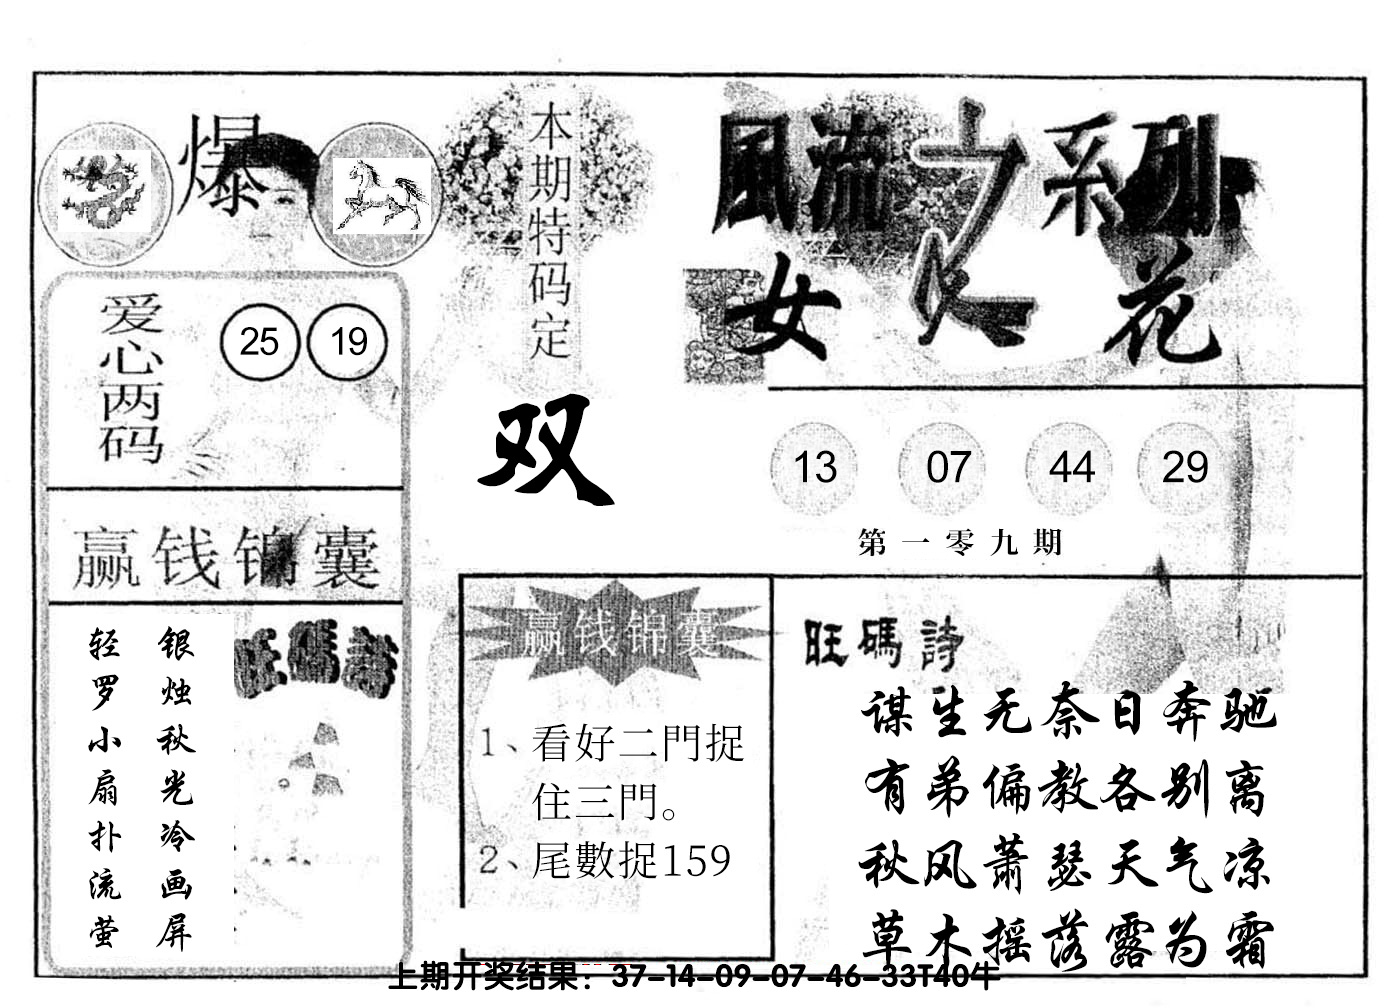 爆
本期特码定
双
風流之系列
女人花
爱心两码
25 19
13 07 44 29
第一零九期
赢钱锦囊
银烛秋光冷画屏
轻罗小扇扑流萤
旺碼詩
赢钱锦囊
1、看好二門捉
住三門。
2、尾數捉159
旺碼詩
谋生无奈日奔驰
有弟偏教各别离
秋风萧瑟天气凉
草木摇落露为霜
上期开奖结果：37-14-09-07-46-33T40牛